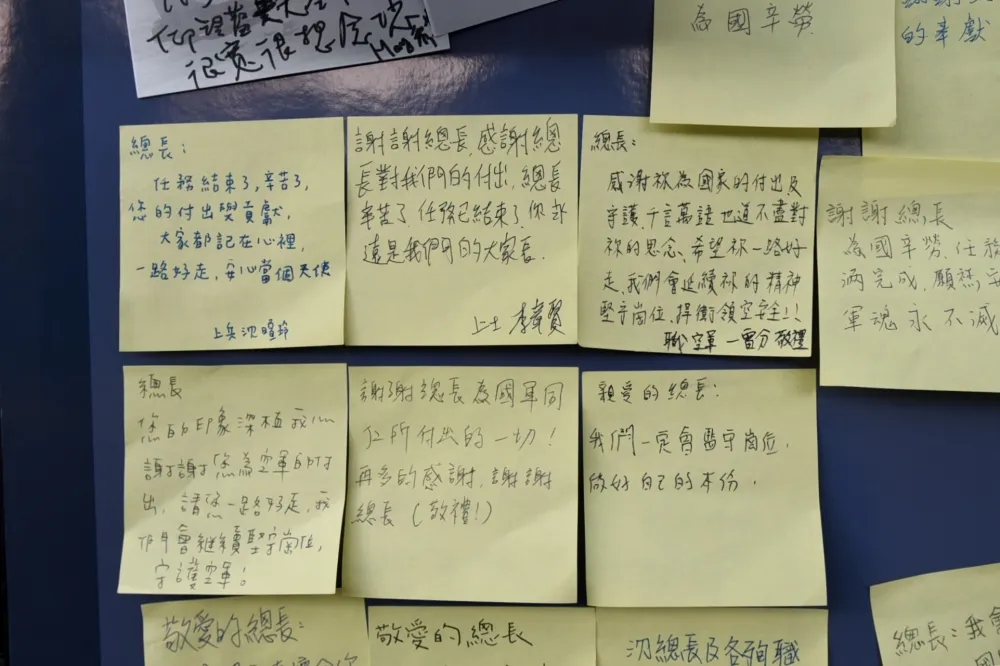 很寬很想
為國辛勞
的奉獻
總長:
任務結束了,辛苦了,
您的付出與貢獻,
大家都記在心裡,
一路好走,安心當個天使
上兵沈
謝謝總長,感謝總
長對我們的付出,總長
辛苦了,任務已結束了你永
遠是我們的大家長.
上士 李
總長:
感謝祢為國家的付出及
守護,千言萬語也道不盡對
祢的思念、希望祢一路好
走,我們會延續祢的精神
堅守崗位,捍衛領空安全!!
職空軍一 敬禮
謝謝總長
為國辛勞,任務
滿完成,願
軍魂永不滅
總長
您的印象深植我心
謝謝您為空軍的付
出,請您一路好走,我
們會繼續堅守崗位,
守護空軍!
謝謝總長為國軍同
仁所付出的一切!
再多的感謝,謝謝
總長(敬禮!)
親愛的總長:
我們一定會堅守崗位,
做好自己的本份.
敬愛的總長:
敬愛的總長
沈總長及各殉職
總長:我會